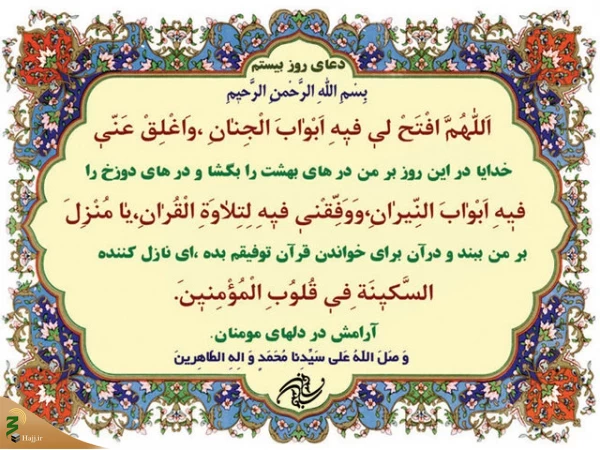 دعای روز بیستم
بِسْمِ اللهِ الرَّحْمنِ الرَّحیمِ
اَللّهُمَّ افْتَحْ لی فیهِ اَبْوابَ الْجِنانِ ،واَغْلِقْ عَنّی
خدایا در این روز بر من در های بهشت را بگشا و در های دوزخ را
فیهِ اَبْوابَ النِّیرانِ،وَوَفِّقْنی فیهِ لِتِلاوَةِ الْقُرْانِ،یا مُنْزِلَ
بر من ببند و درآن برای خواندن قرآن توفیقم بده ،ای نازل کننده
السَّکینَة فِی قُلُوبِ الْمُؤْمِنینَ.
آرامش در دلهای مومنان.
وَ صَلَ اللهُ عَلی سَیِّدِنا مُحَمَدٍ وَ الِهِ الطّاهِرینَ
Hajj.ir